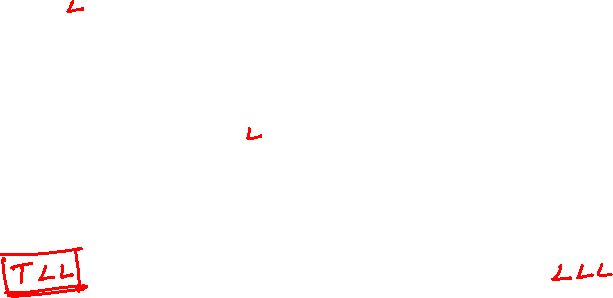 L
L
TLL LLL